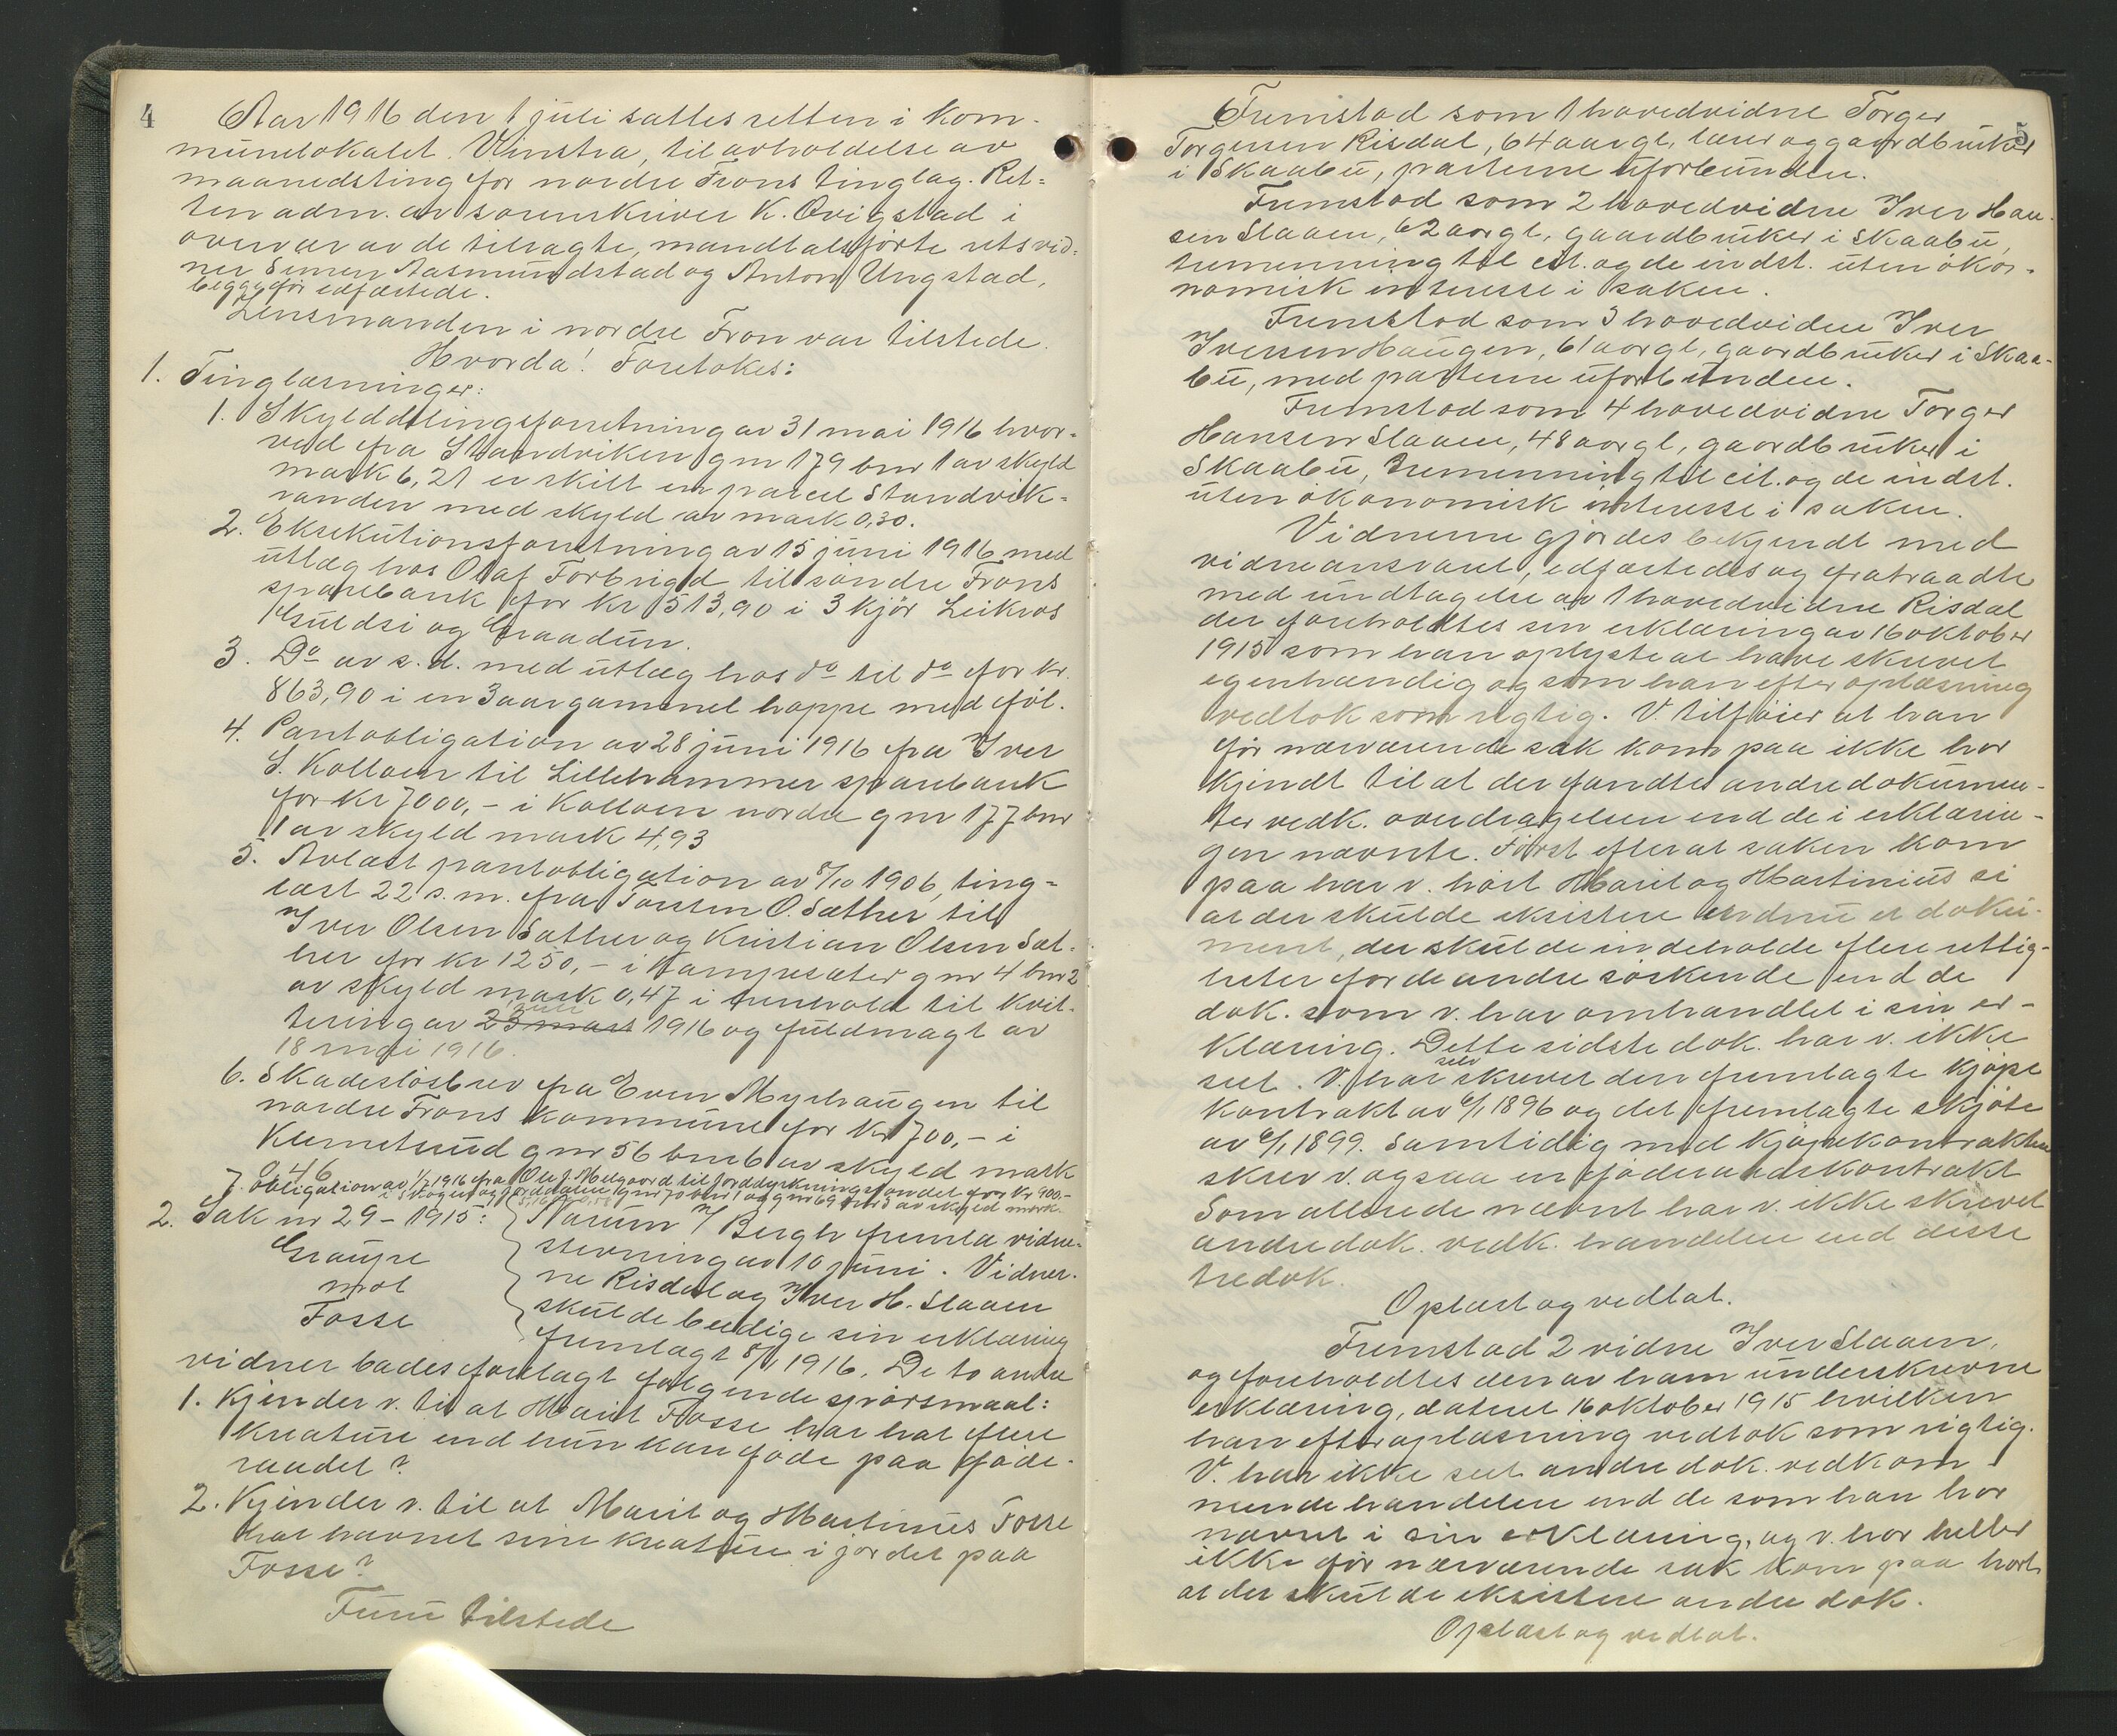 4
Aar 1916 den 1 juli sattes retten i kom-
munelokalet. Vinstra, til avholdelse av
maanedsting for nordre Frons tinglag. Ret-
ten adm. av sorenskriver K. Qvigstad i
overvær av de tilsagte, mandtalsførte retsvid-
ner Simen Aasmundstad og Anton Ungstad,
begge før edfæstede.
Lensmanden i nordre Fron var tilstede.
Hvorda! Foretokes:
1. Tinglæsninger:
1. Skylddelingsforretning av 31 mai 1916 hvor-
ved fra Strandviken gnr 179 bnr 1 av skyld
mark 6,21 er skilt en parcel Standvik-
randen med skyld av mark 0,30.
2. Eksekutionsforretning av 15 juni 1916 med
utlæg hos Olaf Forbrigd til søndre Frons
sparebank for kr 513,90 i 3 kjør Leikros
Guldsi og Graadun.
3. Do av s.d. med utlæg hos do til do for kr.
863,90 i en 3 aar gammel hoppe med føl.
4. Pantobligation av 28 juni 1916 fra Iver
S. Kolloen til Lillehammer sparebank
for kr 7000,- i Kolloen nordre gnr 177 bnr
1 av skyld mark 4,93
5. Avlæst pantobligation av 8/10 1906, ting-
læst 22 s.m. fra Torsten O. Sæther til
Iver Olsen Sæther og Kristian Olsen Sæt-
her for kr 1250,- i Kampesæter gnr 4 bnr 2
av skyld mark 0,47 i henhold til kvit-
tering av 23 mars 1916 og fuldmagt av
18 mai 1916.
6. Skadesløsbrev fra Even Myrhaugen til
nordre Frons kommune for kr 700,- i
Klemetsrud gnr 56 bnr 6 av skyld mark
0,46
7. Obligation av 1/7 1916 fra Ole J. Melgaard til jorddyrkningsfondet for kr 900,-
i Skogen og Jorddalen gnr 70 bnr 1 og gnr 69 bnr 3 av skyld mark
2. Sak nr 29 - 1915: Narum n/ Bergh fremla vidne-
Graupe stevning av 10 juni. Vidner-
mot ne Risdal og Iver H. Slaaen
Fosse skulde beedige sin erklæring
fremlagt 8/1 1916. De to andre
vidner bades forelagt følgende spørsmaal:
1. Kjender v. til at Marit Fosse har hat flere
kreature end hun kan føde paa føde-
raadet?
2. Kjender v. til at Marit og Martinus Fosse
har havnet sine kreature i jordet paa
Fosse?
Furu tilstede
5
Fremstod som 1 hovedvidne Torger
Torgersen Risdal, 64 aar gl, lærer og gaardbruker
i Skaabu, parterne uforbunden.
Fremstod som 2 hovedvidne Iver Han-
sen Slaaen, 62 aar gl, gaardbruker i Skaabu,
tremenning til cit. og de indst. uten øko-
nomisk interesse i saken.
Fremstod som 3 hovedvidne Iver
Iversen Haugen, 61 aar gl, gaardbruker i Skaa-
bu, med parterne uforbunden.
Fremstod som 4 hovedvidne Torger
Hansen Slaaen, 48 aar gl, gaardbruker i
Skaabu, tremenning til cit. og de indst.
uten økonomisk interesse i saken.
Vidnerne gjordes bekjendt med
vidneansvaret, edfæstedes og fratraadte
med undtagelse av 1 hovedvidne Risdal
der foreholdtes sin erklæring av 16 oktober
1915 som han oplyste at have skrevet
egenhændig og som han efter oplæsning
vedtok som rigtig. V. tilføier at han
før nærværende sak kom paa ikke har
kjendt til at der fandtes andre dokumen-
ter vedk. overdragelsen end de i erklærin-
gen nævnte. Først efter at saken kom
paa har v. hørt Marit og Martinius si
at der skulde eksistere endnu et doku-
ment, der skulde indeholde flere rettig-
heter for de andre søskende end de
dok. som v. har omhandlet i sin er-
klæring. Dette sidste dok. har v. ikke
set. V. har selv skrevet den fremlagte kjøpe
kontrakt av 6/1 1896 og det fremlagte skjøte
av 6/1 1899. Samtidig med kjøpekontrakten
skrev v. ogsaa en føderaadskontrakt
Som allerede nævnt har v. ikke skrevet
andre dok. vedk. handelen end disse
tre dok.
Oplæst og vedtat.
Fremstod 2 vidne Iver Slaaen,
og foreholdtes den av ham underskrevne
erklæring, dateret 16 oktober 1915 hvilken
han efter oplæsning vedtok som rigtig.
V. har ikke set andre dok. vedkom-
mende handelen end de som han har
nævnt i sin erklæring, og v. har heller
ikke før nærværende sak kom paa hørt
at der skulde eksistere andre dok.
Oplæst og vedtat.